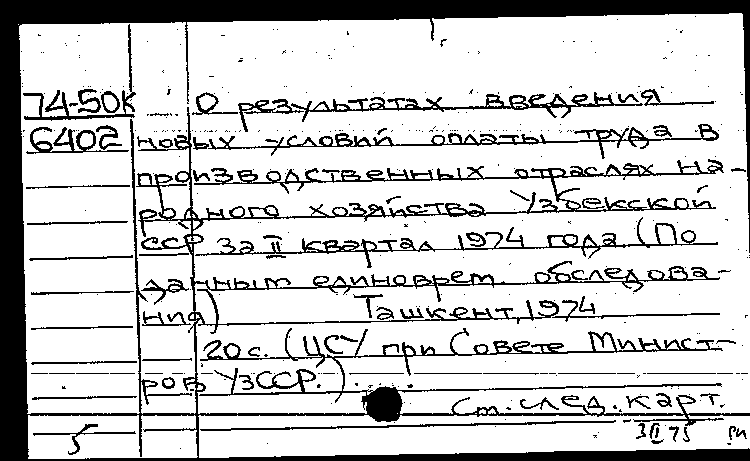 74-50К О результатах введения
6402 новых условий оплаты труда в
производственных отраслях на-
родного хозяйства Узбекской
ССР за II квартал 1974 года (По
данным единоврем. обследова-
ния) Ташкент, 1974.
20 с. (ЦСУ при Совете Минист-
ров УзССР.).
См. след. карт.
5 3 II 75